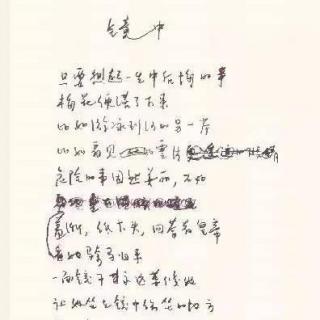 镜中
只要想起一生中后悔的事
梅花便落了下来
比如游泳到河的另一岸
比如看见
危险的事固然美丽，不如
羞惭，低下头，回答着皇帝
看她骑马归来
一面镜子永远等候她
让她坐在镜中常坐的地方